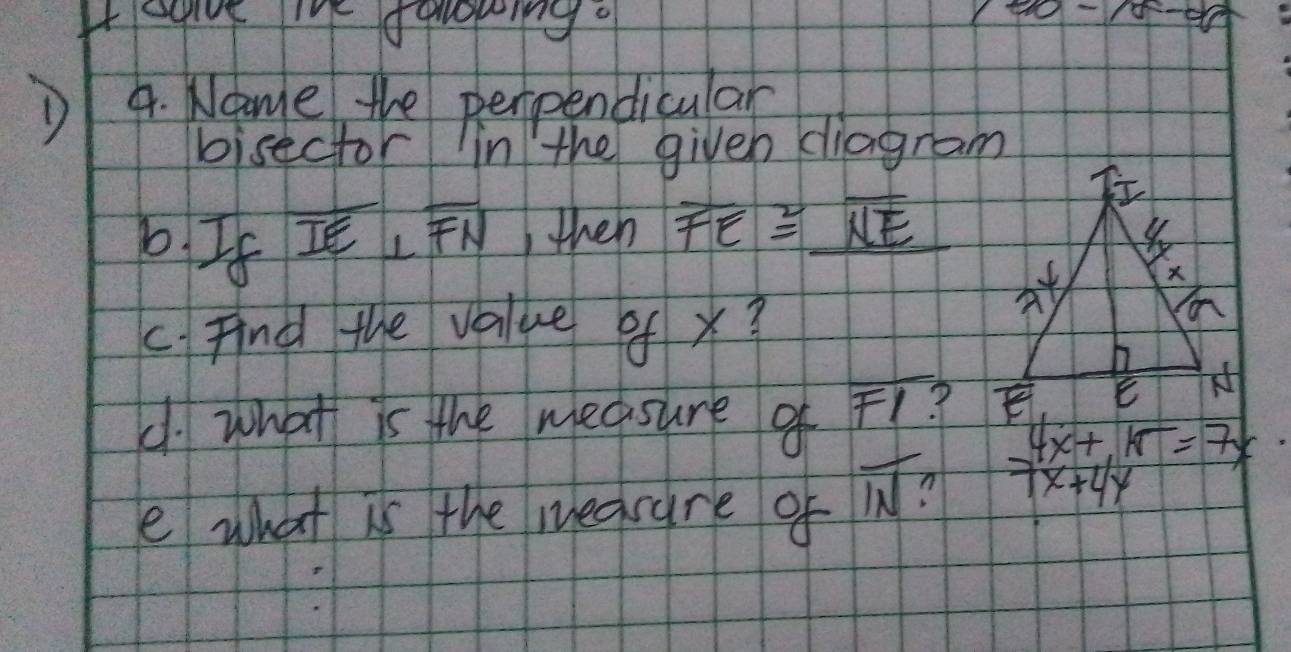 I solve the following:
1) a. Name the perpendicular
bisector in the given diagram
b. If IE ⊥ FN, then FE ≅ NE
c. Find the value of x?
d. what is the measure of FI?
e what is the measure of IN?
I
F E N
4x + 15 = 7x
7x + 4x